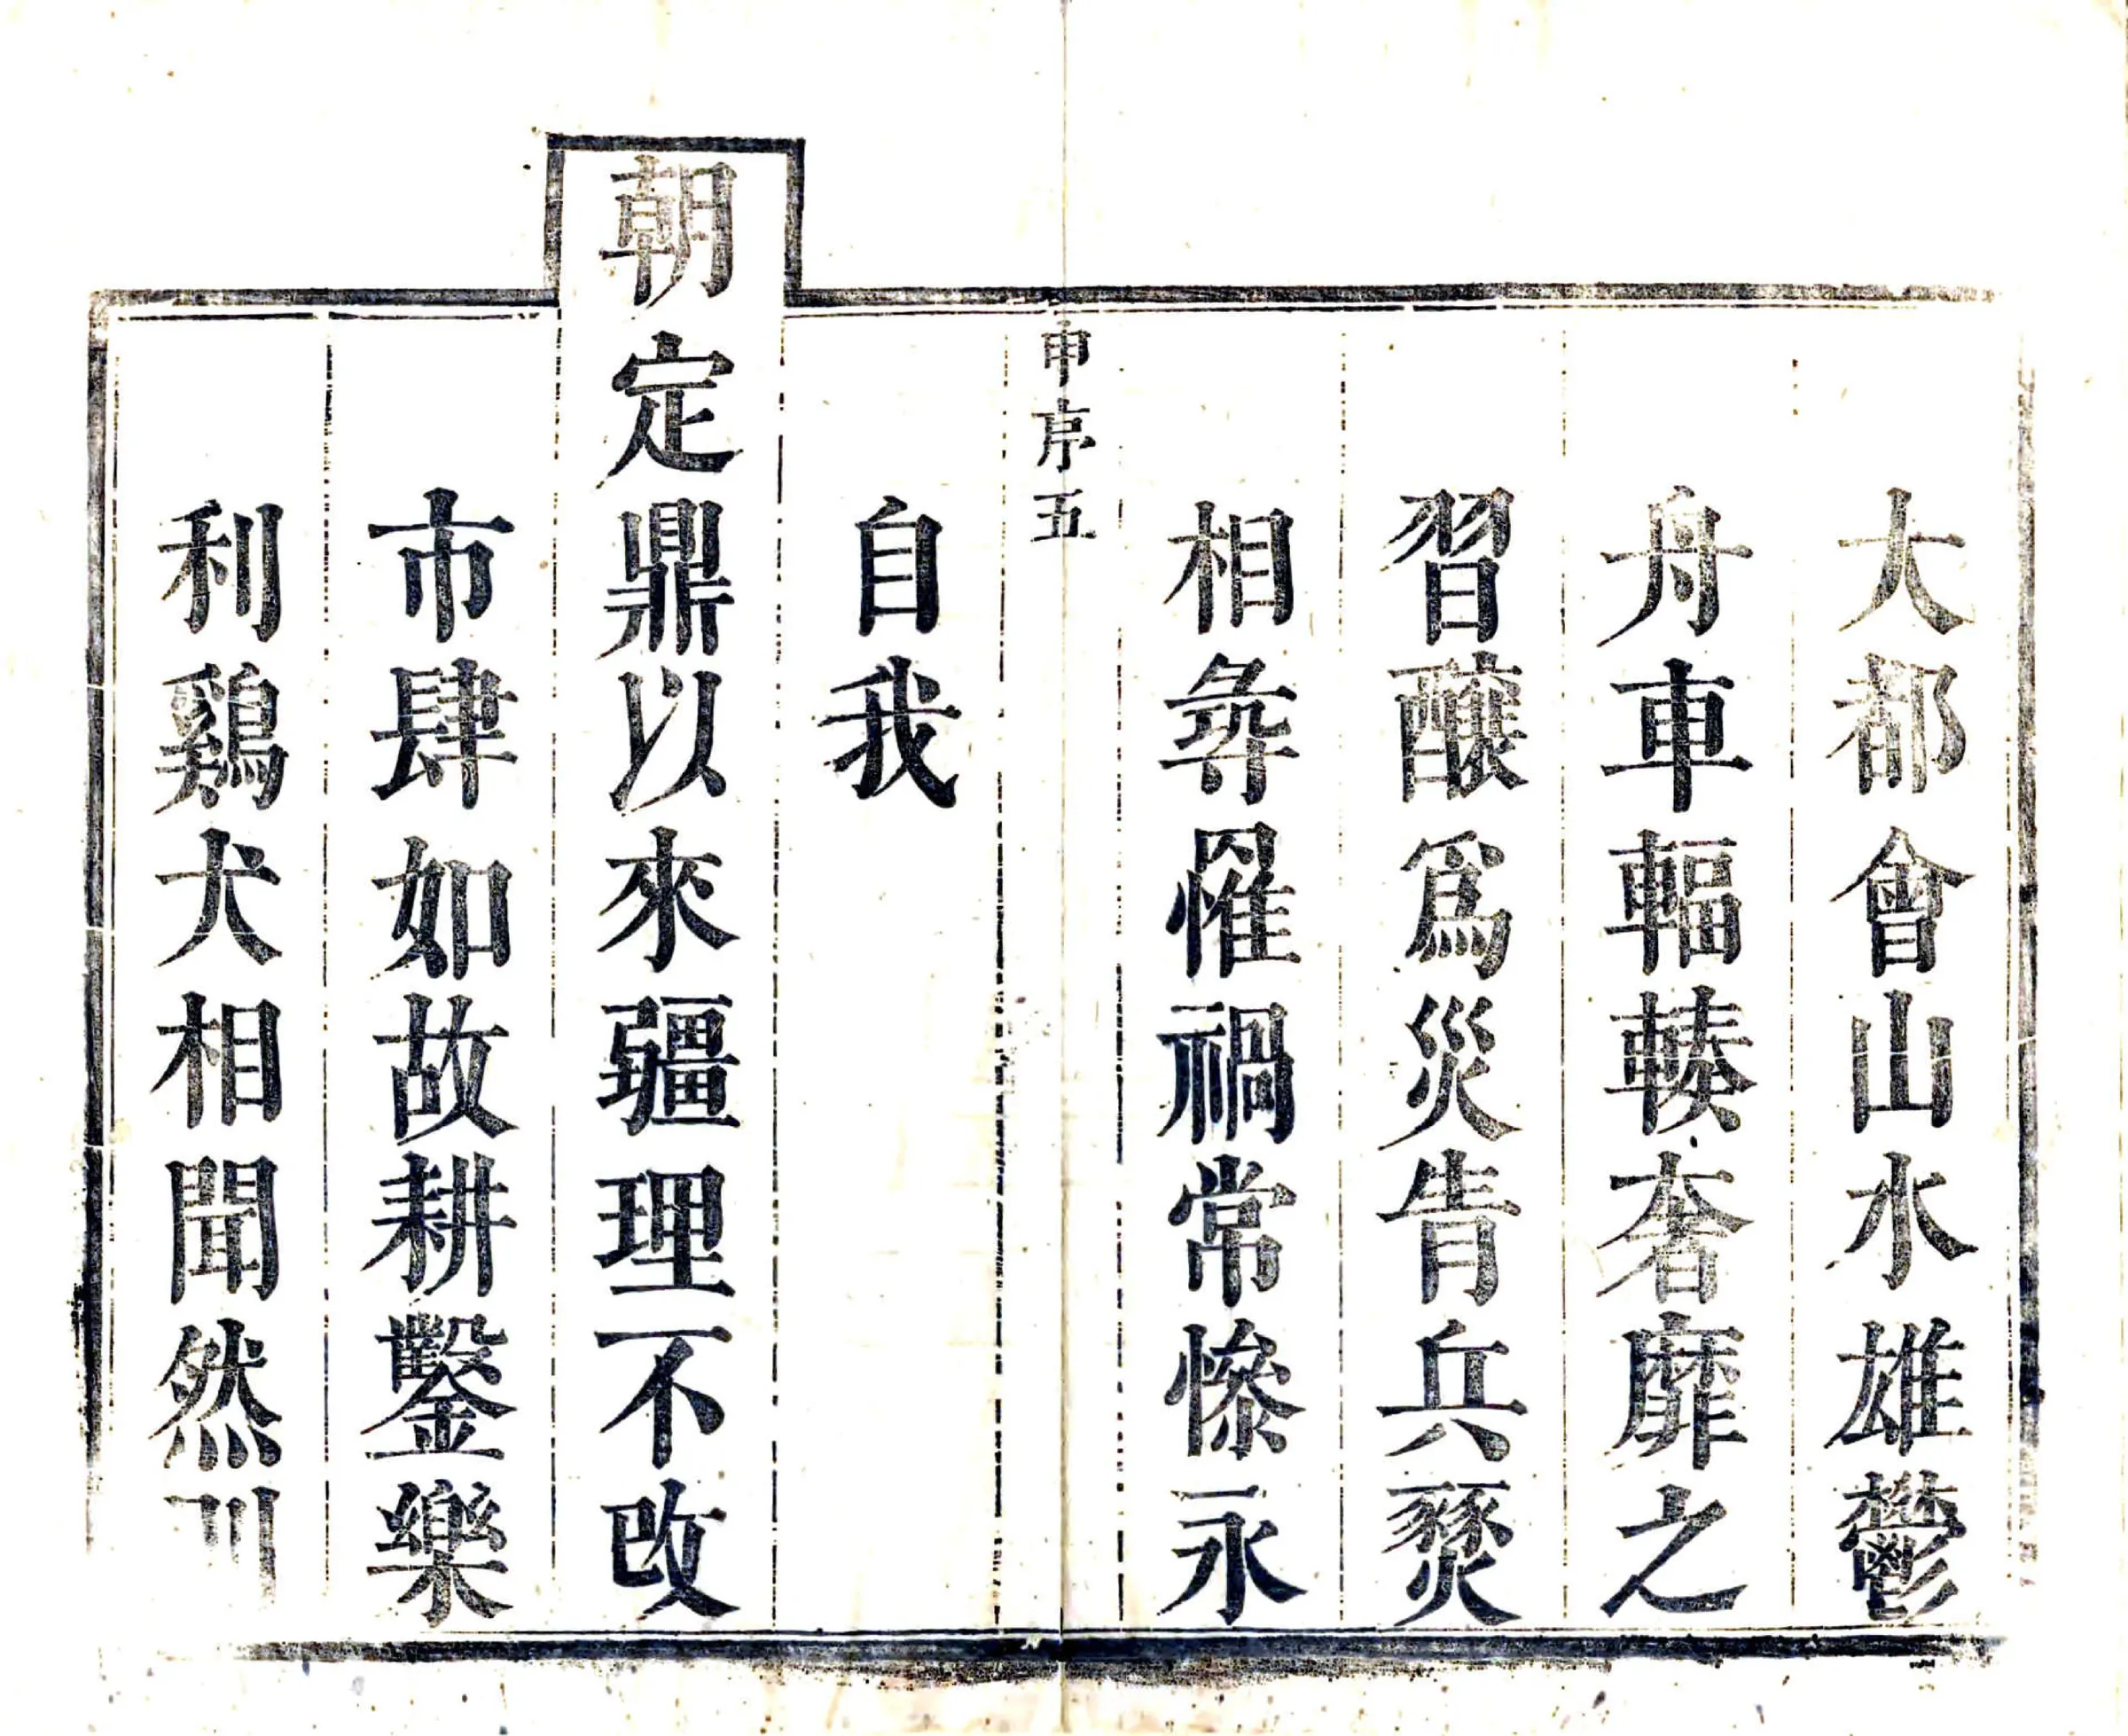 大都會山水雄鬱
舟車輻輳奢靡之
習釀爲災眚兵燹
相尋罹禍常慘永
申序 五
自我
朝定鼎以來疆理不改
市肆如故耕鑿樂
利鷄犬相聞然